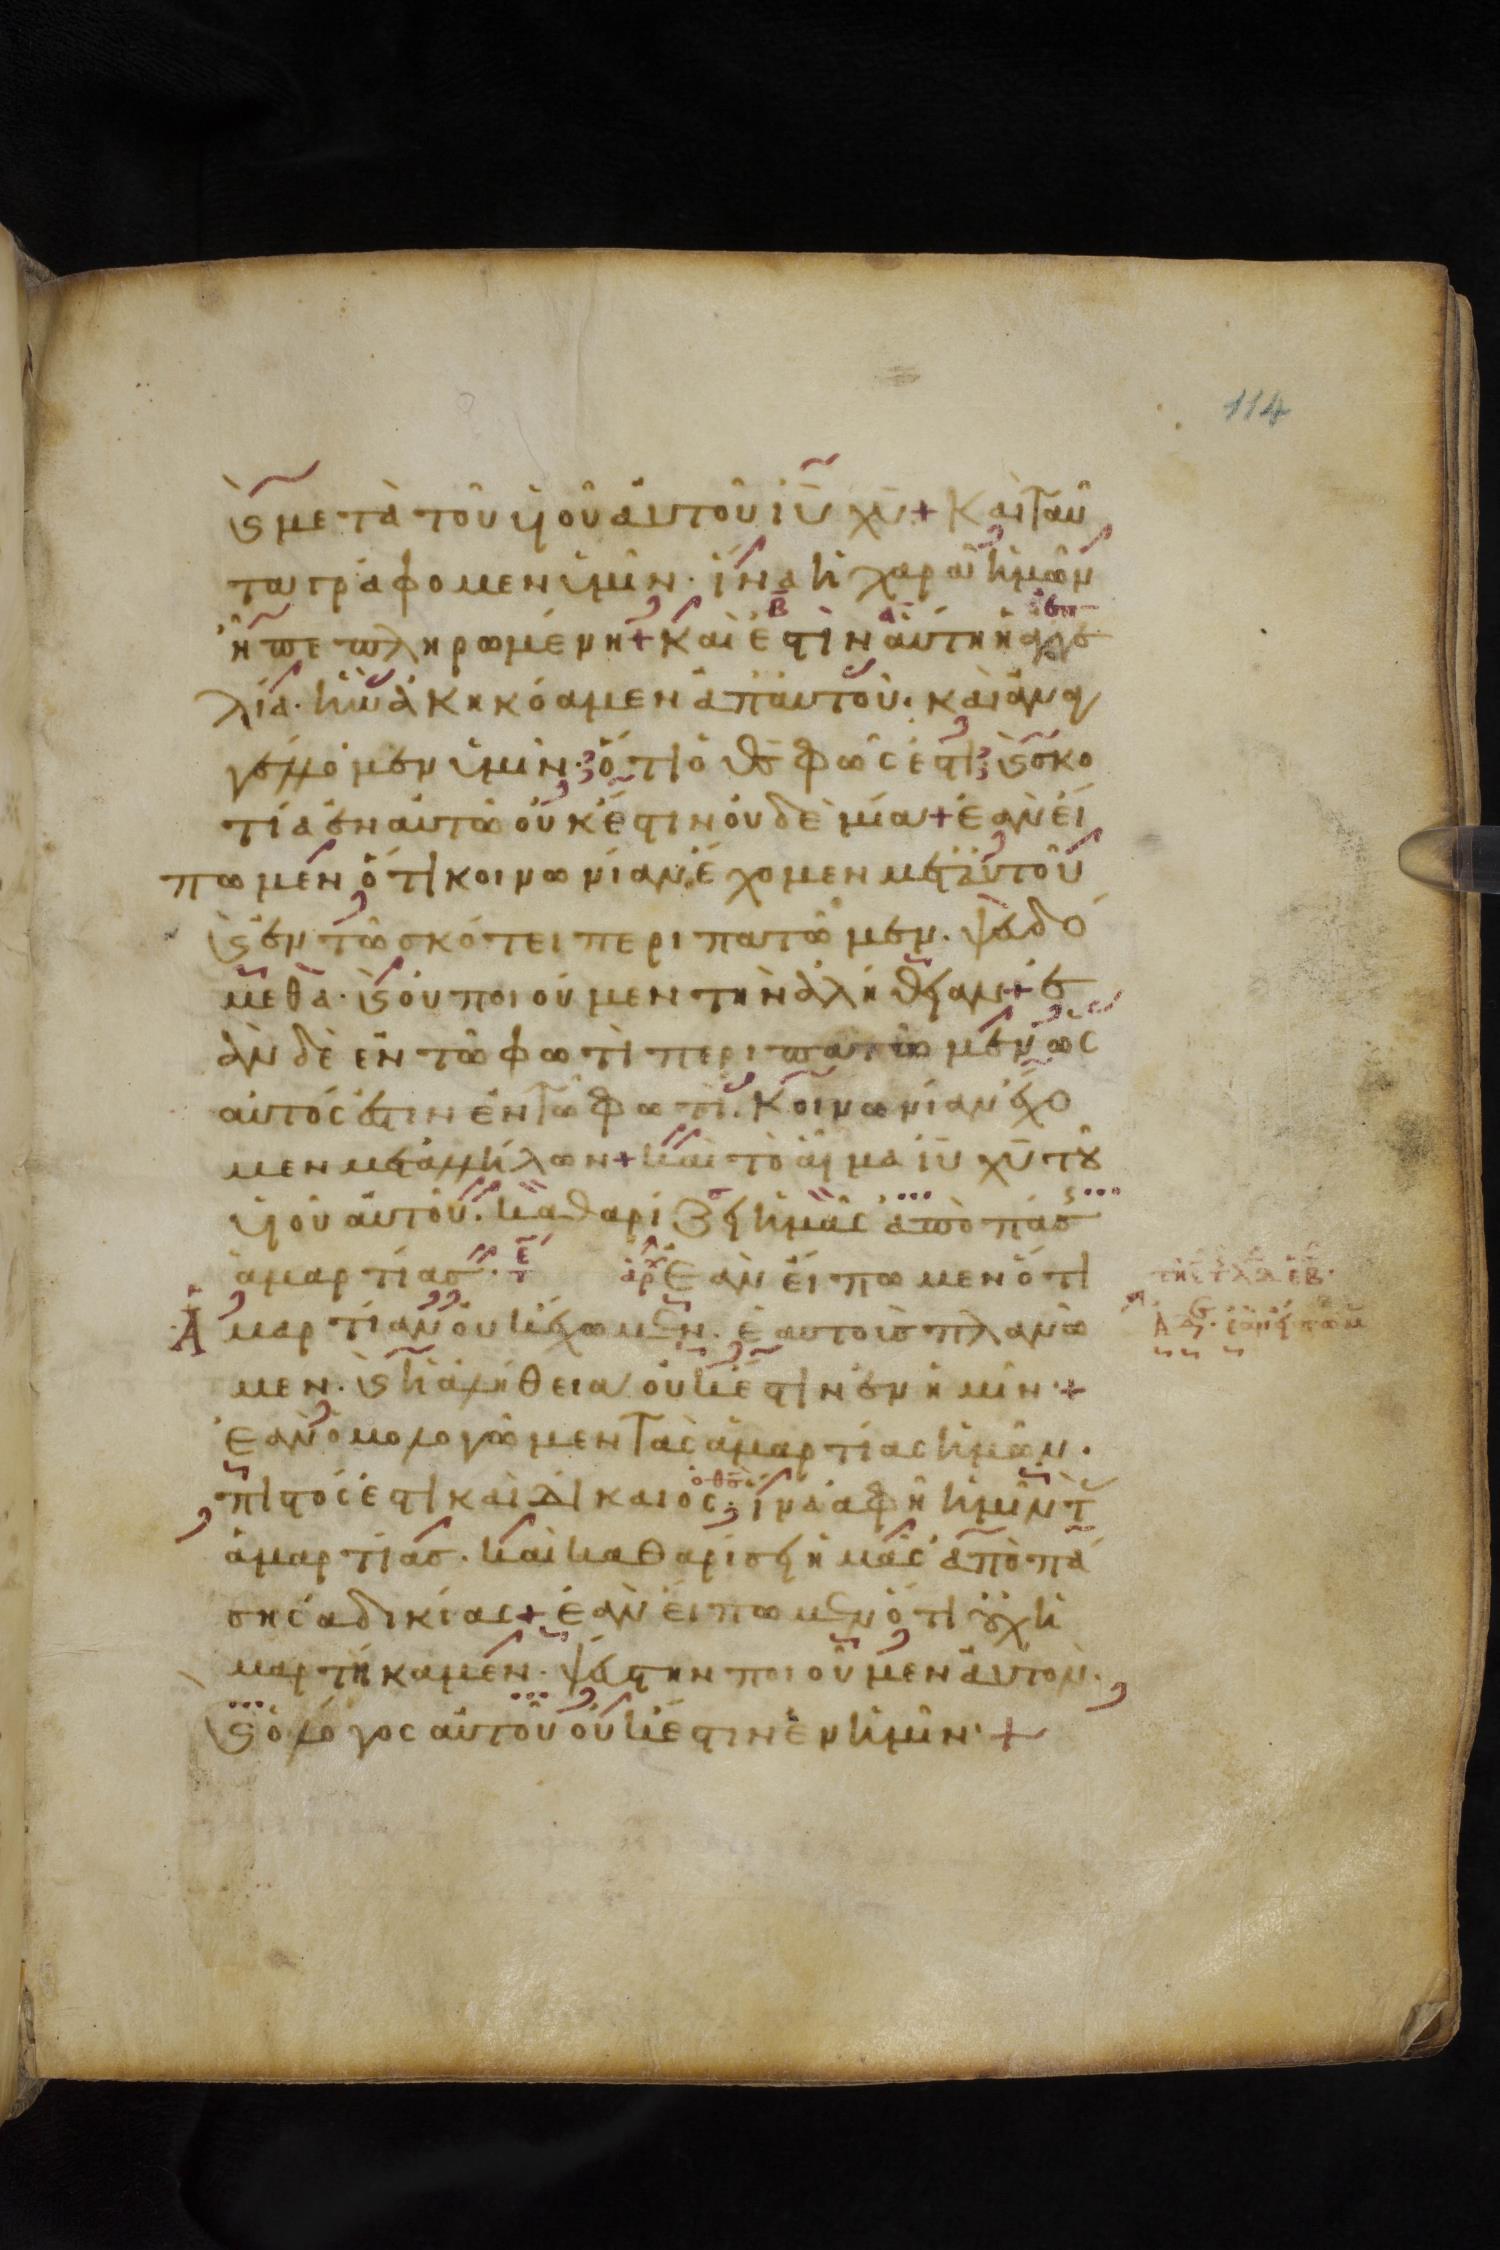 114
ϗ μετὰ τοῦ υἱοῦ αὐτοῦ ιῦ χῦ + Καὶ ταῦ
τα γράφομεν ὑμῖν· ἵνα ἡ χαρὰ ἡμῶν
ᾖ πεπληρωμένη + Καὶ ἐστὶν αὕτη ἡ ἀγγε
λία· ἣν ἀκηκόαμεν ἀπ' αὐτοῦ· καὶ ἀναγ
γέλλομεν ὑμῖν· ὅτι ὁ θς φῶς ἐστι· ϗ σκο
τία ἐν αὐτῶ οὐκ ἔστιν οὐδὲ μία + ἐὰν εἴ
πωμεν ὅτι κοινωνίαν ἔχομεν μετ' αὐτοῦ
ϗ ἐν τῶ σκότει περιπατῶμεν· ψευδό
μεθα· ϗ οὐ ποιοῦμεν τὴν ἀλήθειαν + ἐ
ὰν δὲ ἐν τῶ φωτὶ περιπατῶμεν ὡς
αὐτός ἐστιν ἐν τῶ φωτί· Κοινωνίαν ἔχο
μεν μετ' ἀλλήλων + καὶ τὸ αἷμα ιῦ χῦ τοῦ
υἱοῦ αὐτοῦ· καθαρίζει ἡμᾶς ἀπὸ πάσ
ἁμαρτίας· τε αρχ Ἐὰν εἴπωμεν ὅτι
Ἁμαρτίαν οὐκ ἔχωμεν· ἑαυτοὺς πλανῶ
μεν· ϗ ἡ ἀλήθεια οὐκ ἔστιν ἐν ἡμῖν· +
Ἐὰν ὁμολογῶμεν τὰς ἁμαρτίας ἡμῶν·
πιστός ἐστι καὶ δίκαιος ὁ θς· ἵνα ἀφῆ ἡμῖν τ
ἁμαρτίας· καὶ καθαρίσει ἡμᾶς ἀπὸ πά
σης ἀδικίας + ἐὰν εἴπωμεν ὅτι οὐχ ἡ
μαρτήκαμεν· ψεύστην ποιοῦμεν αὐτόν·
ϗ ὁ λόγος αὐτοῦ οὐκ ἔστιν ἐν ἡμῖν· +